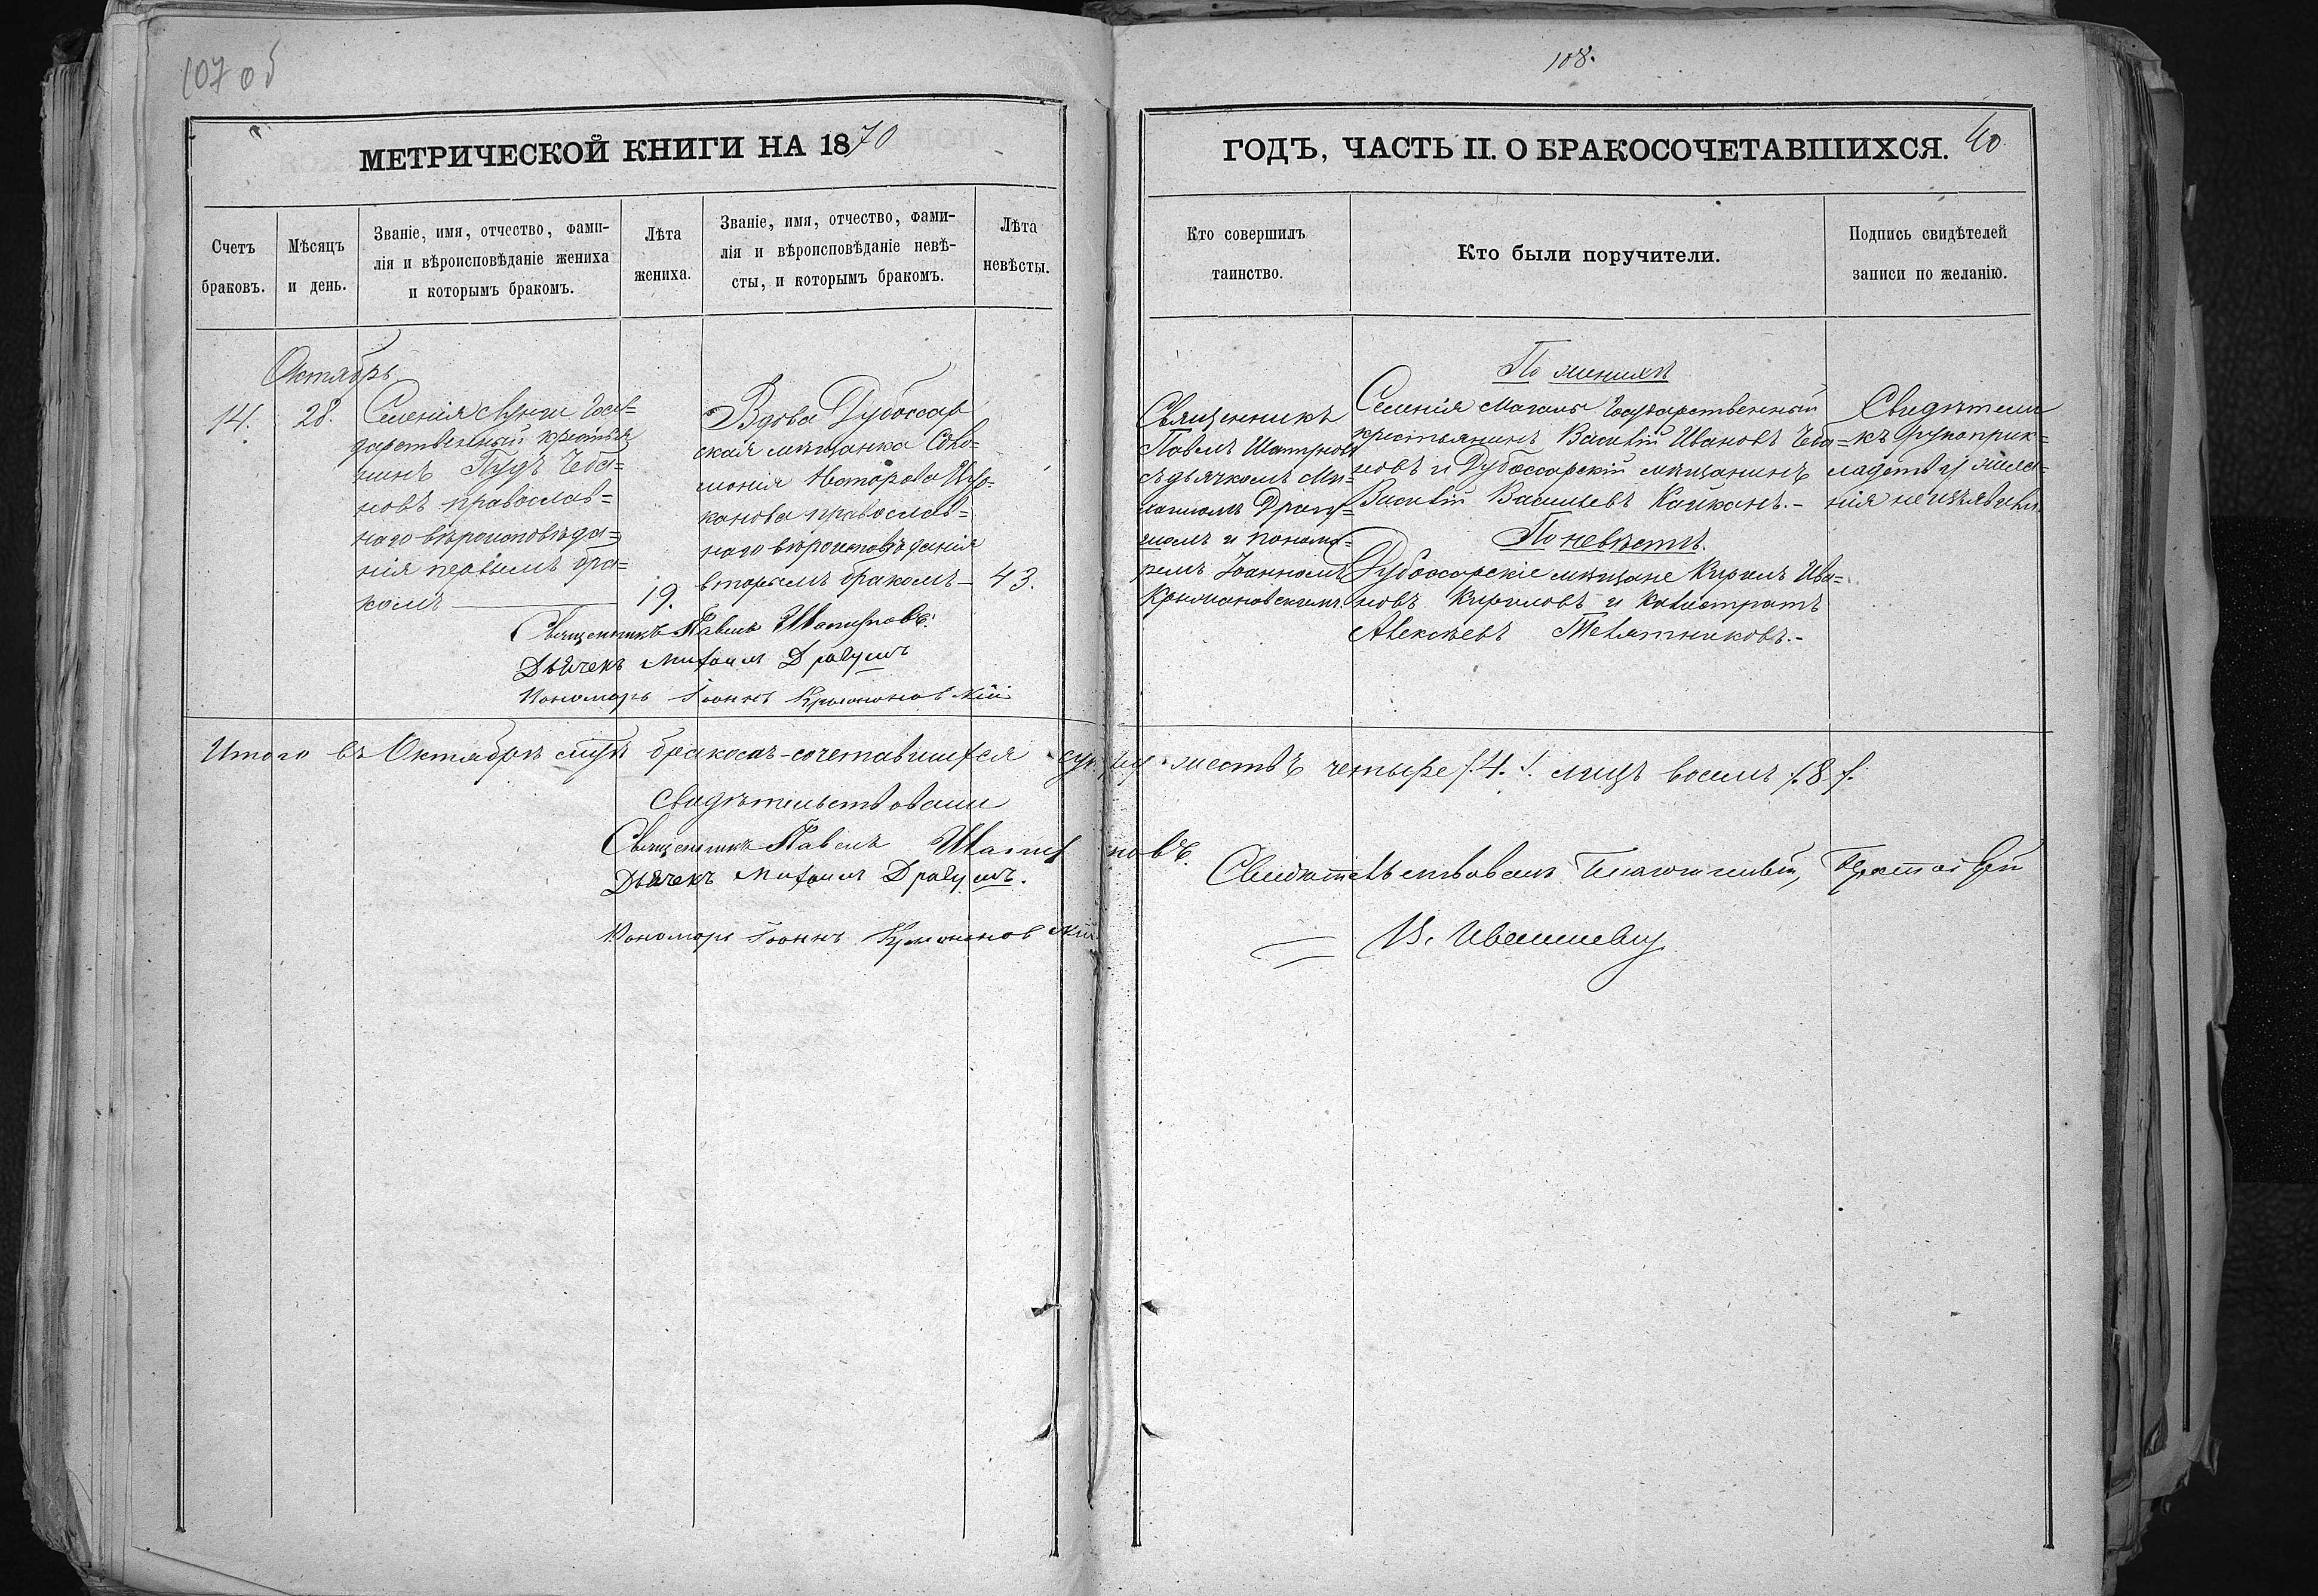 107 об
108.
МЕТРИЧЕСКОЙ КНИГИ НА 1870
ГОДЪ, ЧАСТЬ II. О БРАКОСОЧЕТАВШИХСЯ. 40.
Счетъ
браковъ.
Мѣсяцъ
и день.
Званіе, имя, отчество, фами-
лія и вѣроисповѣданіе жениха
и которымъ бракомъ.
Лѣта
жениха.
Званіе, имя, отчество, фами-
лія и вѣроисповѣданіе невѣ-
сты, и которымъ бракомъ.
Лѣта
невѣсты.
Кто совершилъ
таинство.
Кто были поручители.
Подпись свидѣтелей
записи по желанію.
Октябрь
14.
28.
Селенія Лунги Госу=
дарственный крестья
нинъ Пудъ Чеба=
новъ православ=
наго вѣроисповѣда=
нія первымъ бра=
комъ
19.
Вдова Дубоссар
ская мѣщанка Соло=
монія
канова православ=
наго вѣроисповѣданія
вторымъ бракомъ
43.
Священникъ
Павелъ Шапурновъ
съ дьячкомъ Ми=
хаиломъ Драгу=
шомъ и понома=
ремъ Іоанномъ
Крыжановскимъ.
По женихѣ
Селенія Магалы Государственный
крестьянинъ Василій Ивановъ Чеба=
новъ и Дубоссарскій мѣщанинъ
Василій Васильевъ Кайканъ.-
По невѣстѣ.
Дубоссарскіе мѣщане Кирилъ Ива=
новъ Кириловъ и Калистратъ
Алексѣевъ Телятниковъ.-
Свидѣтели
къ рукоприк=
ладству жела=
нія не изъявили.
Священникъ Павелъ
Дьячекъ Михаилъ Драгушъ
Пономарь Іоаннъ Крыжановскій
Итого въ Октябрѣ м-цѣ бракомъ-сочетавшихся суп-ру-жествъ четыре /.4./. лицъ восемь /.8./.
Свидѣтельствовали
Священникъ Павелъ
Дьячекъ Михаилъ Драгушъ.
Пономарь Іоаннъ Крыжановскій
Свидѣтельствовалъ Благочинный, Протоіерей
В. Ивашевич